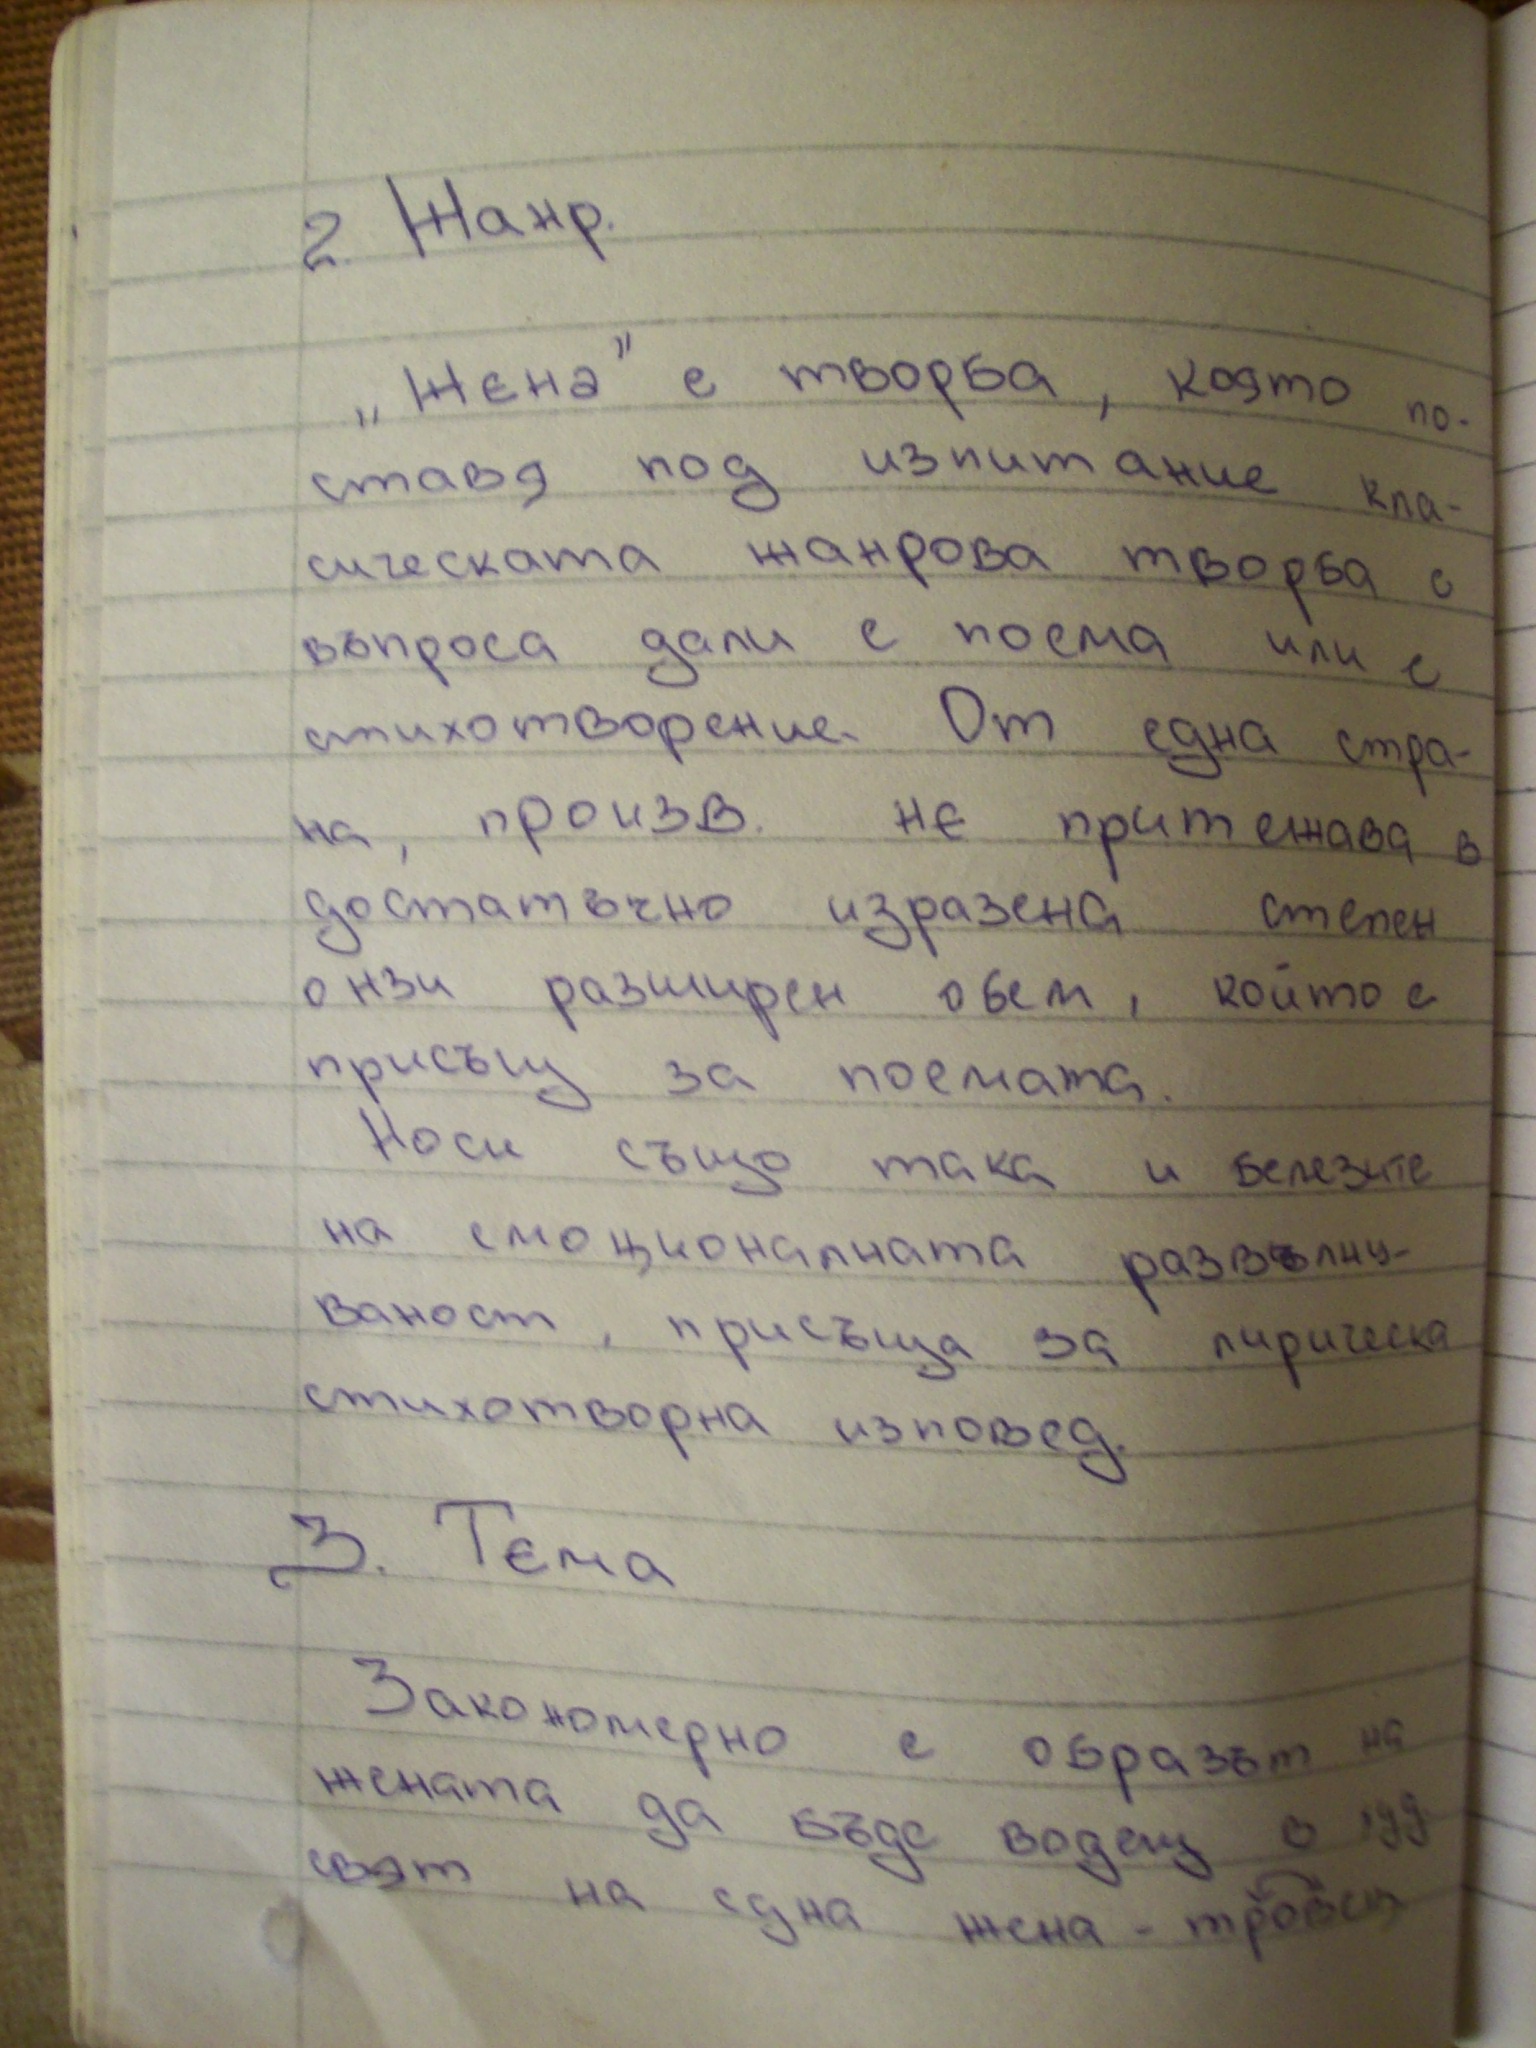 2. Жанр.
„Жена" е творба, която по-
ставя под изпитание кла-
сическата жанрова творба с
въпроса дали е поема или е
стихотворение. От една стра-
на, произв. не притежава в
достатъчно изразена степен
онзи разширен обем, който е
присъщ за поемата.
Носи също така и белезите
на емоционалната развълну-
ваност, присъща за лирическа
стихотворна изповед.
3. Тема
Закономерно е образът на
жената да бъде водещ в худ.
свят на една жена -